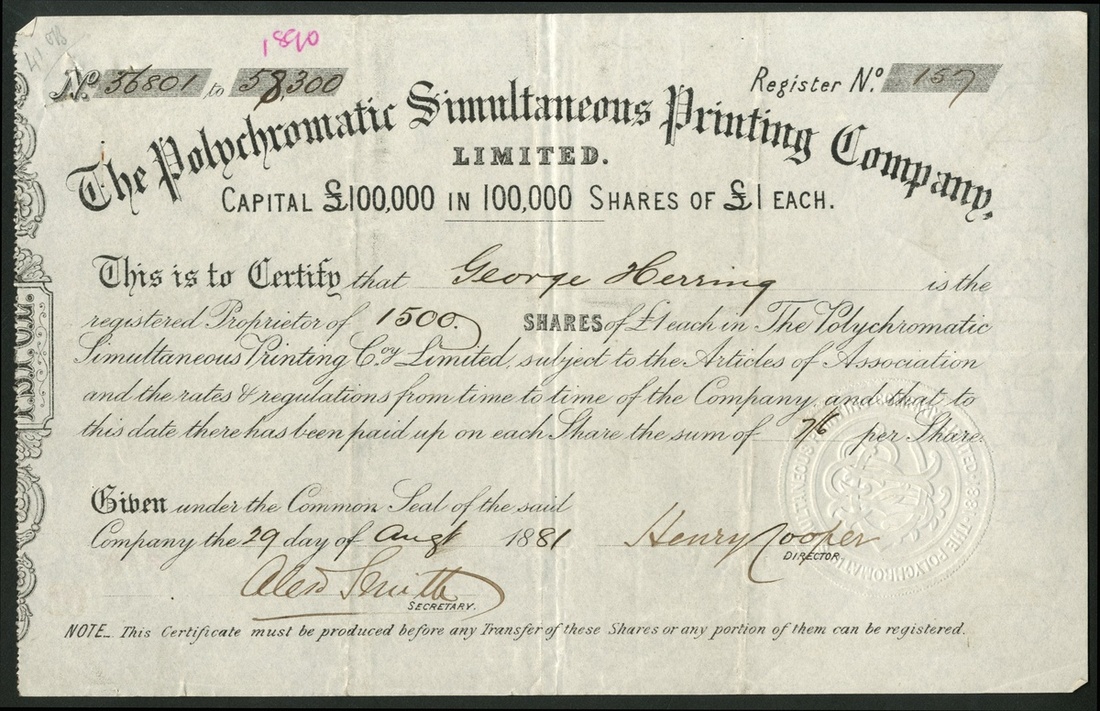 1890
No. 56801 to 58,300 Register No. 157
The Polychromatic Simultaneous Printing Company,
LIMITED.
CAPITAL £100,000 IN 100,000 SHARES OF £1 EACH.
This is to Certify that George Herring is the
registered Proprietor of 1500. SHARES of £1 each in The Polychromatic
Simultaneous Printing Coy. Limited, subject to the Articles of Association
and the rates & regulations from time to time of the Company, and that to
this date there has been paid up on each Share the sum of 7/6 per Share.
Given under the Common Seal of the said
Company the 29 day of Augt 1881 Henry Cooper
DIRECTOR.
Alexr Smith
SECRETARY.
NOTE. This Certificate must be produced before any Transfer of these Shares or any portion of them can be registered.